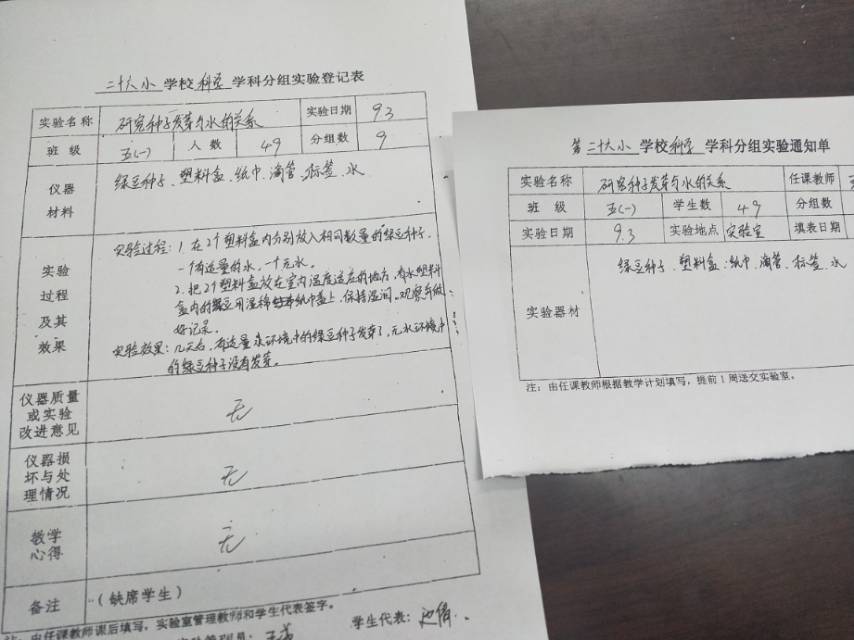 二十大小 学校 科学 学科分组实验登记表
实验名称 研究种子发芽与水的关系 实验日期 9.3
班 级 五(一) 人 数 49 分组数 9
仪器 绿豆种子、塑料盒、纸巾、滴管、标签、水
材料
实验过程: 1. 在2个塑料盒内分别放入相同数量的绿豆种子.
一个有适量的水, 一个无水.
实验 2. 把2个塑料盒放在室内温度适应的地方, 有水塑料
过程 盒内的绿豆用湿棉 纸巾盖上, 保持湿润. 观察并做
及其 好记录.
效果 实验效果: 几天后, 有适量水环境中的绿豆种子发芽了, 无水环境中
的绿豆种子没有发芽.
仪器质量
或实验 无
改进意见
仪器损
坏与处 无
理情况
教学 无
心得
备注 (缺席学生)
注: 由任课教师课后填写, 实验室管理教师和学生代表签字。
学生代表:
第二十大小 学校 科学 学科分组实验通知单
实验名称 研究种子发芽与水的关系 任课教师
班 级 五(一) 学生数 49 分组数
实验日期 9.3 实验地点 实验室 填表日期
绿豆种子、塑料盒、纸巾、滴管、标签、水
实验器材
注: 由任课教师根据教学计划填写, 提前1周送交实验室。